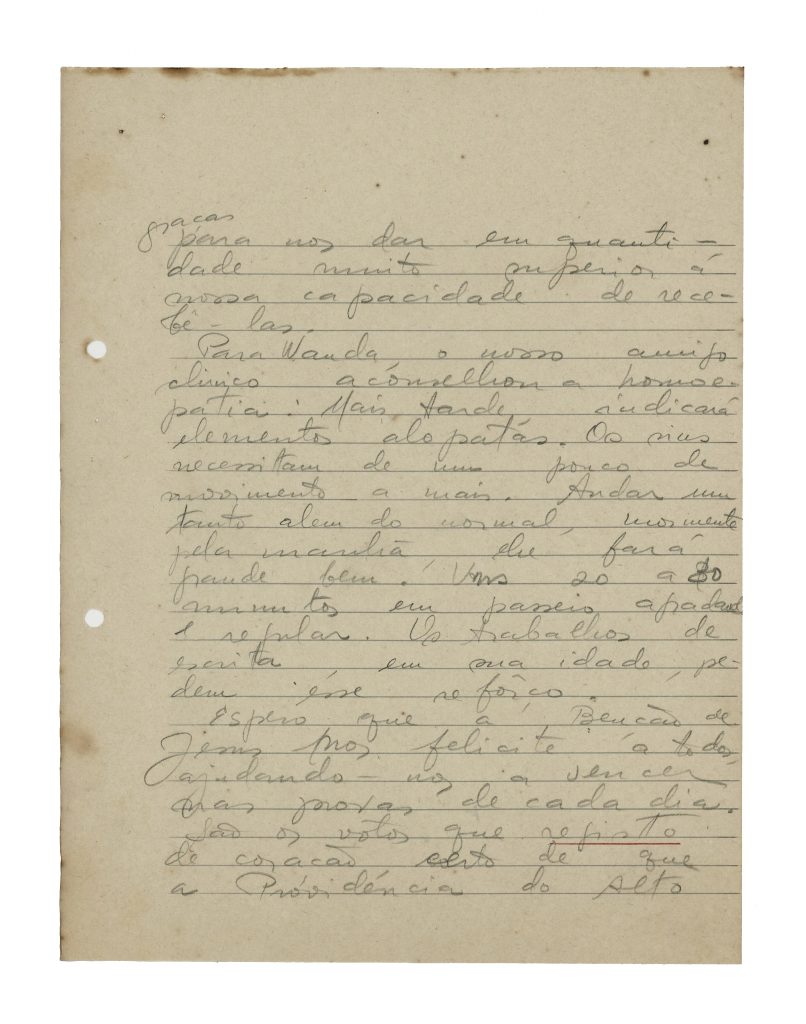 graças
para nos dar em quanti-
dade muito superior á
nossa capacidade de rece-
bê-las.
Para Wanda, o nosso amigo
clinico aconselhou a homoe-
patia. Mais tarde indicará
elementos alopatás. Os rins
necessitam de um pouco de
movimento a mais. Andar um
tanto alem do normal, mormente
pela manhã lhe fará
grande bem. Uns 20 a 30
minutos em passeio agradavel
e regular. Os trabalhos de
escrita, em sua idade, pe-
dem êsse refôrço.
Espero que a Bencão de
Jesus nos felicite a todos,
ajudando-nos a vencer
nas provas de cada dia.
São os votos que registo
de coração certo de que
a Providência do Alto